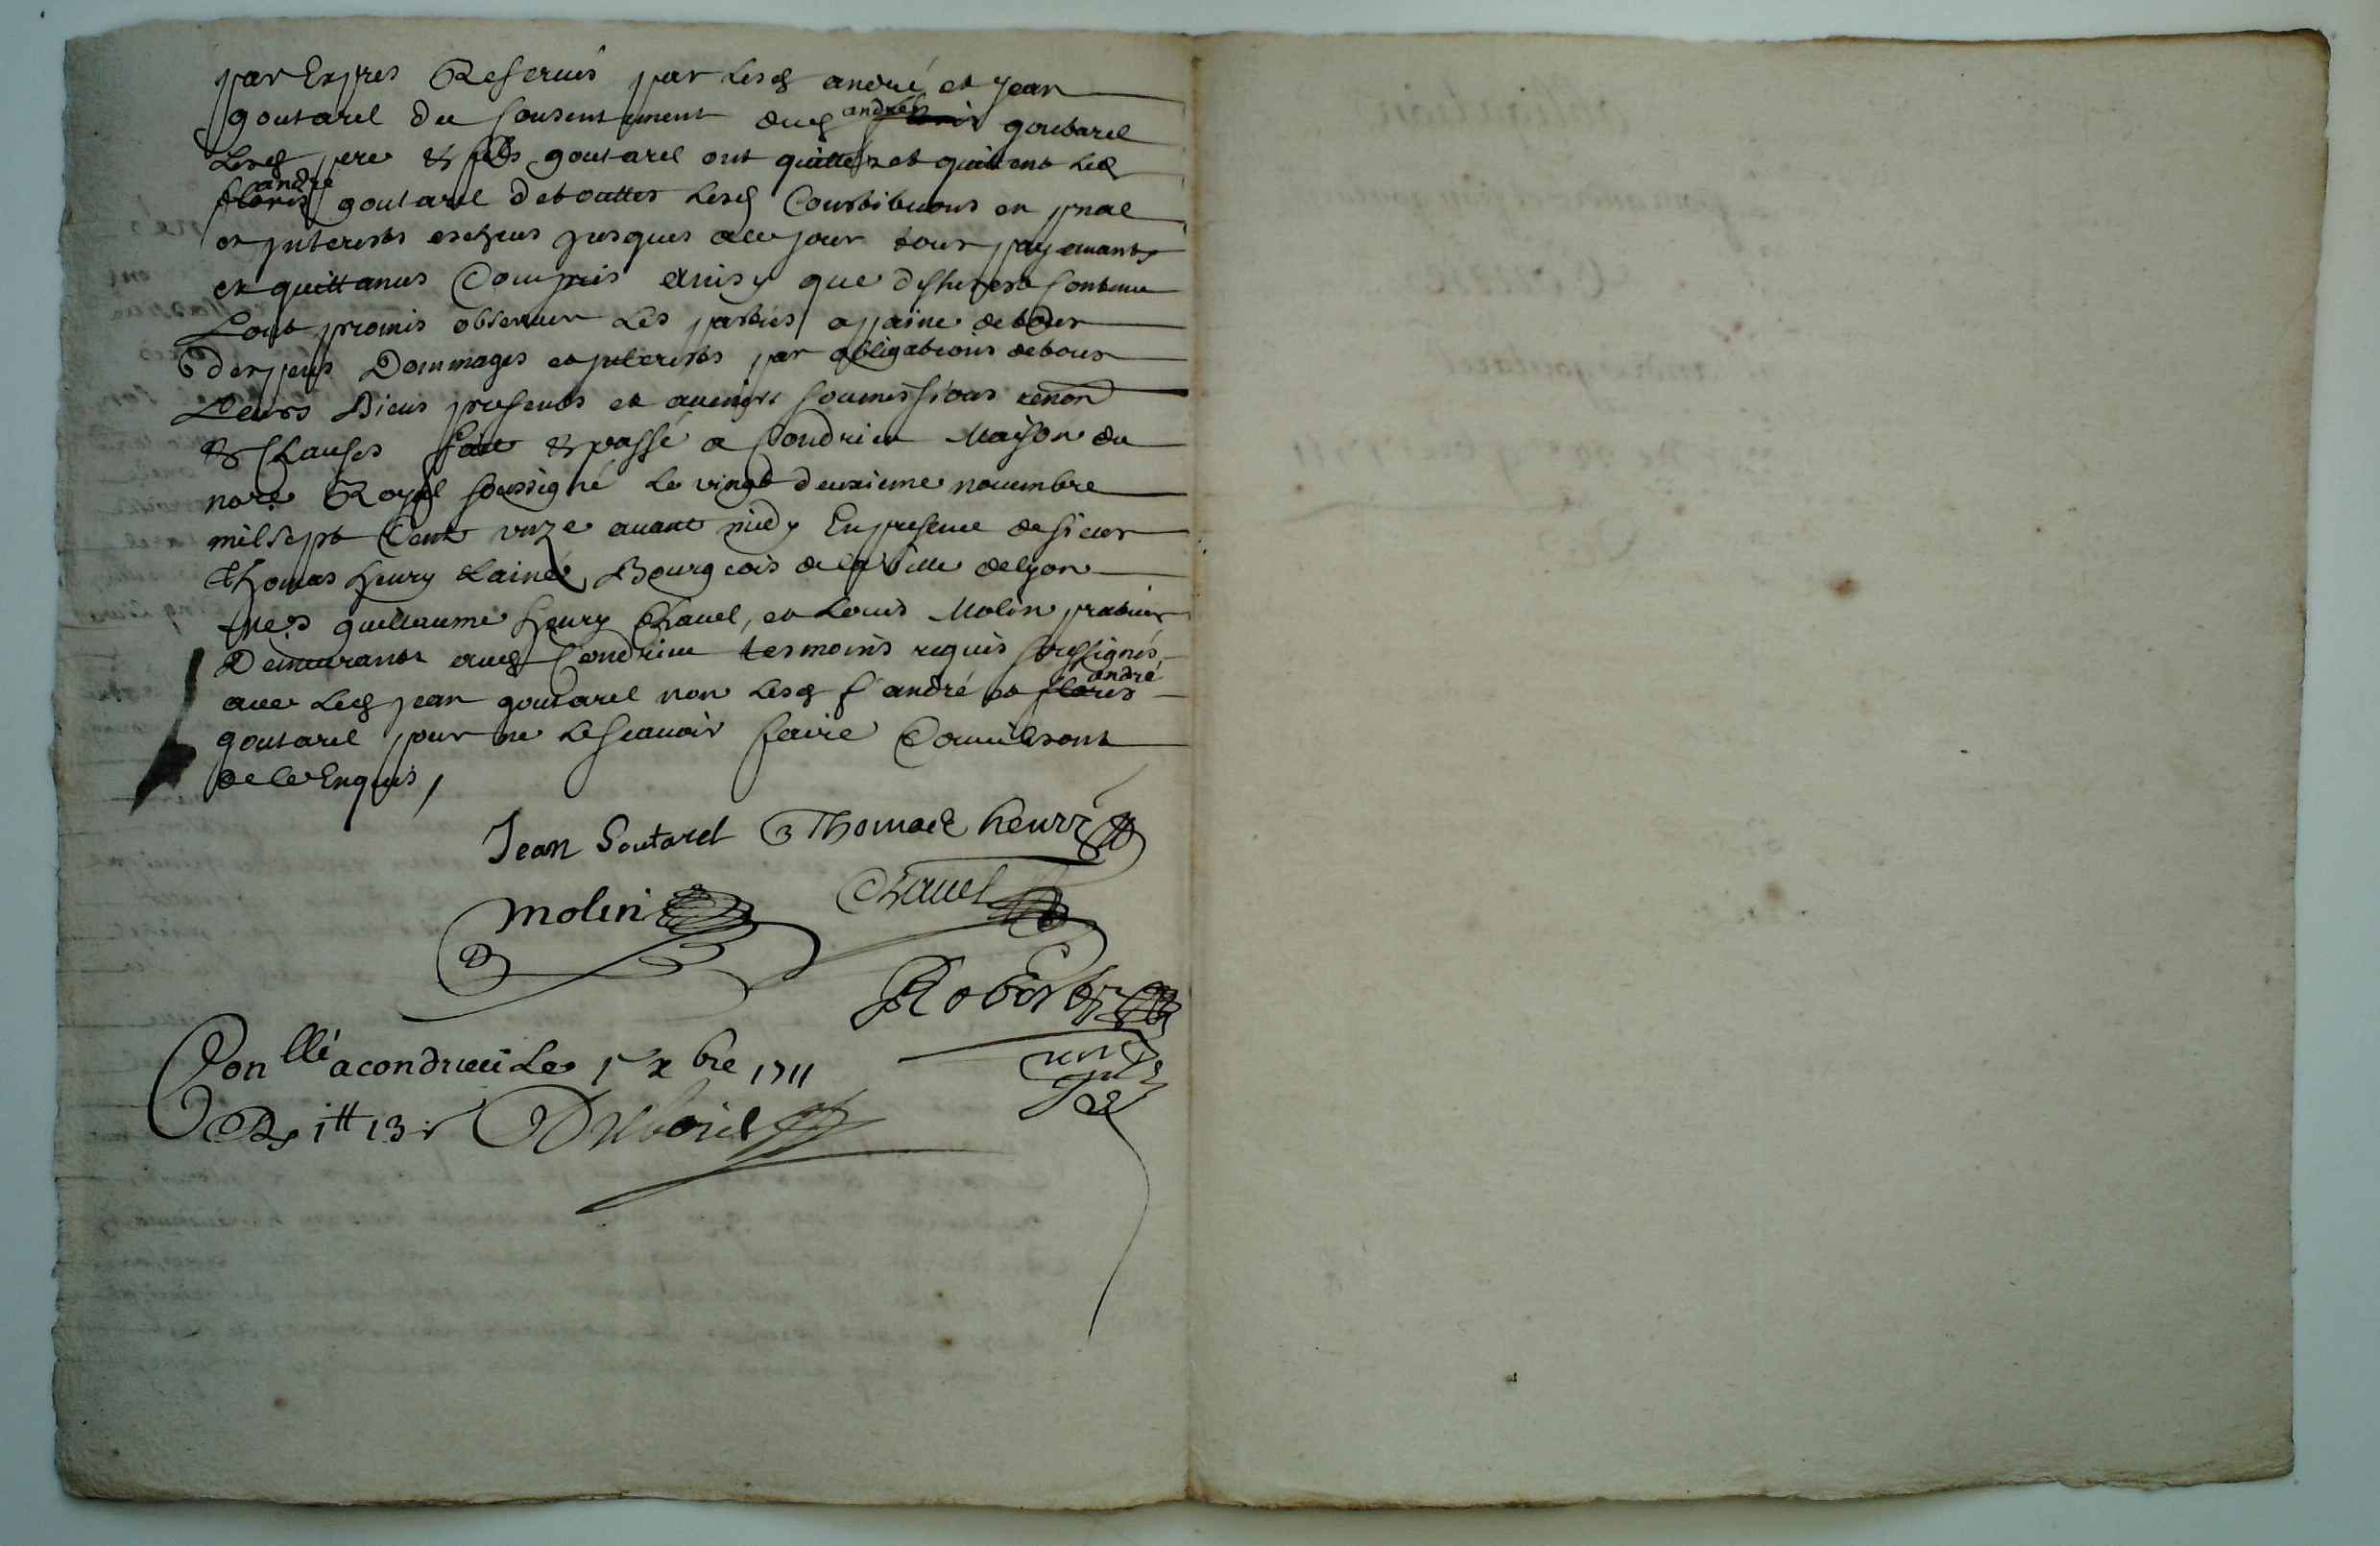 par Expres Reserués par lesd andré et Jean
goutarel du consentement dud andré floris goutarel
Lesd pere & fils goutarel ont quittés et quittent led
andré floris goutarel de touttes lesd Contributions en pnal
et jnterests escheus jusques a ce jour tous payemants
et quittances Compris ainsy que dessus est contenu
L'ont promis obseruer les parties a paine de tous
despens Dommages et jnterests par obligations de tous
Leurs Biens presents et auenirs soumissions renon
& Clauses fait & passé a Condrieu Maison du
nore Royal soussigné le vingt deuxieme nouembre
mil sept Cent vnze auant midy En presence de sieur
Thomas henry L'ainé Bourgeois de la Ville de lyon
Mes guillaume henry Chauel, et Louis Molin praticien
Demeurants aud Condrieu tesmoins requis soussignés
auec led jean goutarel non lesd s andré et andré floris
goutarel pour ne le scauoir faire Comm'ils ont
de ce Enquis /
Jean Goutarel Thomas henri
molin Chauel
Robert
Conllé a condrieu Le 1r xbre 1711
R 1tt 13s Dubois